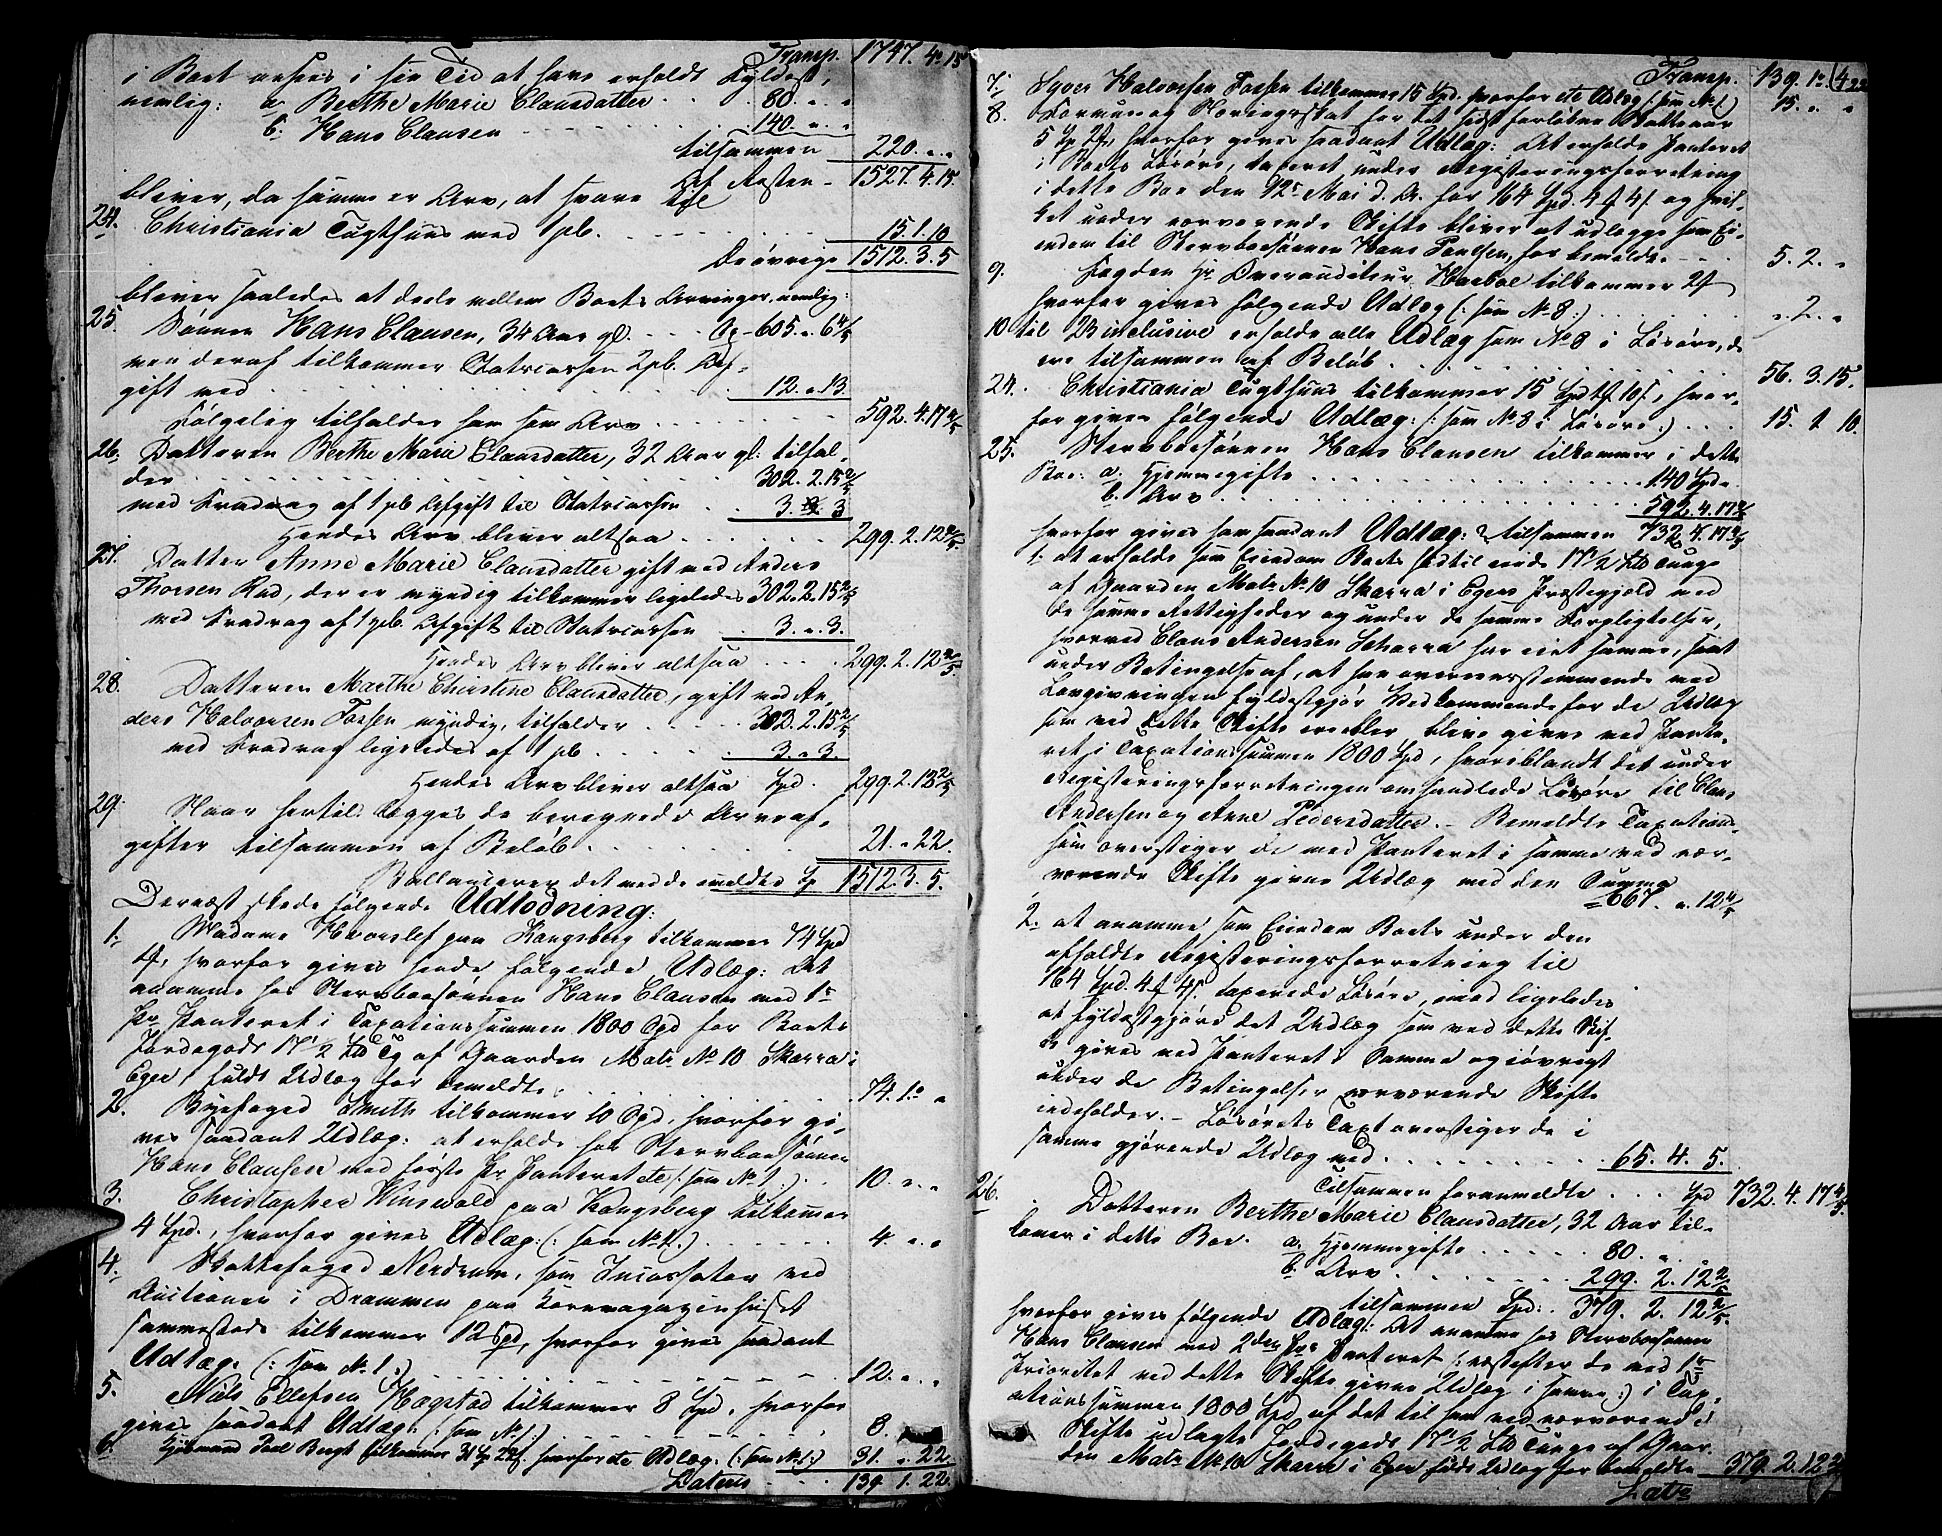 Transp. 1747. 4. 15
i Boet ansees i sin Tid at have erholdt Fyldest,
nemlig: a. Berthe Marie Clausdatter . . . 80. „ „
b. Hans Clausen - - - - - 140. „ „
tilsammen 220. „ „
Af Resten - 1527. 4. 15.
bliver, da samme er Arv, at svare til
24. Christiania Tugthuus med 1 pCt. . . . 15. 1. 10
De øvrige 1512. 3. 5
bliver saaledes at dele mellem Boets Arvinger, nemlig:
25. Sønnen Hans Clausen, 34 Aar gl. . . . 605. „ 6 4/5
men deraf tilkommer Statscassen 2 pCt. Af-
gift med . . . 12. „ 13.
Følgelig tilfalder ham som Arv . . . 592. 4. 17 4/5
26. Datteren Berthe Marie Clausdatter, 32 Aar gl. tilfal-
der . . . 302. 2. 15 2/5
med Fradrag af 1 pCt Afgift til Statscassen . . 3. „ 3
Hendes Arv bliver altsaa . . . 299. 2. 12 2/5
27. Datter Anne Marie Clausdatter gift med Anders
Thorsen Rud, der er myndig tilkommer ligeledes 302. 2. 15 2/5
med Fradrag af 1 pCt. Afgift til Statscassen . 3. „ 3.
Hendes Arv bliver altsaa . . . 299. 2. 12 2/5
28. Datteren Marthe Christine Clausdatter, gift med An-
ders Halvorsen Fossen myndig, tilfalder . . . 302. 2. 15 2/5
med Fradrag ligeledes af 1 pCt . . . 3. „ 3.
Hendes Arv bliver altsaa Spd. 299. 2. 12 2/5
29. Naar hertil lægges de beregnede Arveaf-
gifter tilsammen af Beløb . . . 21. „ 22.
Ballancerer det med de anmeldte Sp 1512. 3. 5.
Dernæst skede følgende Udlodning:
1. Madame Hvorslef paa Kongsberg tilkommer 74 Spd
1 ₰, hvorfor gives hende følgende Udlæg: At
anamme hos Stervboesønnen Hans Clausen med 1ste
Pr. Panteret i Taxationssummen 1800 Spd for Boets
Jordegods 17 1/2 Ltd Tg af Gaarden Matr No 10 Skarra i
Eger, fuldt Udlæg for bemeldte . . . 74. 1. „
2. Byefoged Smith tilkommer 10 Spd, hvorfor gi-
ves saadant Udlæg: at erholde hos Stervboesønnen
Hans Clausen med første Pr Panteret etc (: som No 1 :) . . 10. „ „
3. Christopher Winswold paa Kongsberg tilkommer
4 Spd., hvorfor gives Udlæg: (: som No 1. :) . . . 4. „ „
4. Skattefoged Nerdrum, som Incassator ved
Auctioner i Drammen paa Kornmagazinhuset
sammesteds tilkommer 12 Spd, hvorfor gives saadant
Udlæg: (: som No. 1 :) . . . 12. „ „
5. Niels Ellefsen Hægstad tilkommer 8 Spd, hvorfor
gives saadant Udlæg: (: som No 1. :) . . . 8.
6. Kjøbmand Poul Bergh tilkommer 31 Sp 22 s. hvorfor etc Udlæg: (: som No 1. :) 31. „ 22.
Lateris . . 139. 1. 22.
Transp. 139. 1. 22
7. Halvorsen Fossen tilkommer 15 Spd. hvorfor etc Udlæg (: som No 1) 15. „ „
8. Formue og Næringsskat for det sidst forløbne Skatteaar
5 Sp 2 ₰, hvorfor gives saadant Udlæg: At erholde Panteret
i Boets Løsøre, taxeret under Registeringsforretning
i dette Boe den 12te Mai d. A. for 164 Spd. 4 ₰ 4 s. og hvil-
ket under nærværende Skifte bliver at udlægge som Ei-
endom til Stervboesønnen Hans Clausen, for bemeldte - - - 5. 2. „
9. Fogden Hr. Overauditeur Horboe tilkommer 2 ₰
hvorfor gives følgende Udlæg (: som No 8 :) . . . „ 2. „
10 til 23 inclusive erholde alle Udlæg som No 8 i Løsøre, de
ere tilsammen af Beløb . . . 56. 3. 15.
24. Christiania Tugthuus tilkommer 15 Spd 1 ₰ 10 s, hvor-
for gives følgende Udlæg: (: som No 8 i Løsøre :) . . . 15. 1. 10.
25. Stervboesønnen Hans Clausen tilkommer i dette
Boe: a. Hjemmegifte . . . 140 Spd „
b. Arv . . . 592. 4. 17 4/5
hvorfor gives ham saadant Udlæg: tilsammen 732. 4. 17 4/5
1. at erholde som Eiendom Boets tilhørende 17 1/2 Ltd Tunge
af Gaarden Matr No 10 Skarra i Egers Præstegjeld med
de samme Rettigheder og under de samme Forpligtelser,
hvormed Claus Andersen Skarra har eiet samme, samt
under Betingelse af, at han overensstemmende med
Lovgivningen fyldestgjør Vedkommende for de Udlæg
som ved dette Skifte ere eller blive givne med Pante-
ret i Taxationssummen 1800 Spd, hvoriblandt det under
Registeringsforretningen omhandlede Løsøre til Claus
Andersen og Anne Pedersdatter. - Bemeldte Taxations-
sum overstiger de med Panteret i samme ved nær-
værende Skifte givne Udlæg med den Summa
667. „ 12 4/5
2. at anamme som Eiendom Boets under den
afholdte Registeringsforretning til
164 Spd. 4 ₰ 4 s. taxerede Løsøre, mod ligeledes
at fyldestgjøre det Udlæg som ved dette Skif-
te gives med Panteret i samme og iøvrigt
under de Betingelser nærværende Skifte
indeholder. - Løsørets Taxt overstiger de i
samme gjørende Udlæg med . . . 65. 4. 5.
Tilsammen foranmeldte . . . Spd 732. 4. 17 4/5
26. Datteren Berthe Marie Clausdatter, 32 Aar til-
kommer i dette Boe. a. Hjemmegifte . . . 80. „
b. Arv . . . 299. 2. 12 2/5
tilsammen Spd: 379. 2. 12 2/5
hvorfor gives følgende Udlæg: At anamme hos Stervboesønnen
Hans Clausen med 2den Pr. Panteret (: næstefter de med 1ste
Prioritet ved dette Skifte givne Udlæg i samme :) i Tax-
ationssummen 1800 Spd af det til ham ved nærværende
Skifte udlagte Jordegods 17 1/2 Ltd Tunge af Gaar-
den Matr No 10 Skarra i Eger fuldt Udlæg for bemeldte 379. 2. 12 2/5
Lats